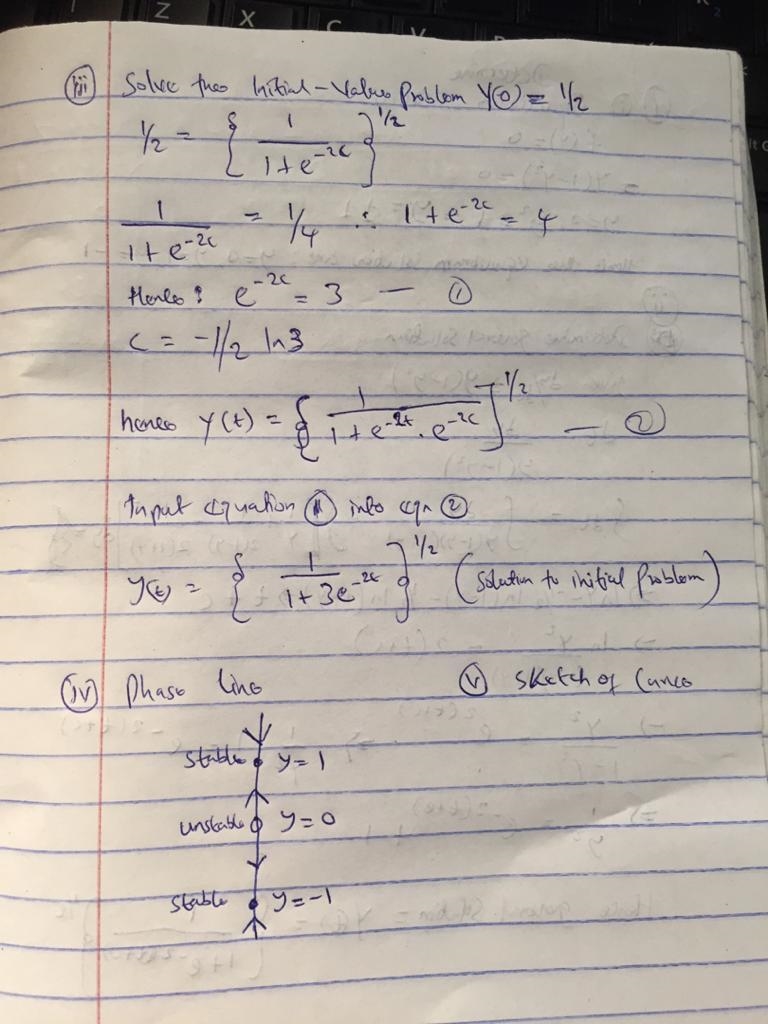 (iii) Solve the Initial-Value Problem Y(0) = 1/2
1/2 = { 1 / 1+e^-2c }^1/2
1 / 1+e^-2c = 1/4 ∴ 1+e^-2c = 4
Hence: e^-2c = 3 — ①
C = -1/2 ln3
hence Y(t) = { 1 / 1+e^-2t . e^-2c }^1/2 — ②
Input equation ① into eqn ②
y(t) = { 1 / 1+3e^-2t }^1/2 (Solution to initial Problem)
(iv) Phase Line (v) Sketch of Curve
Stable y=1
unstable y=0
Stable y=-1